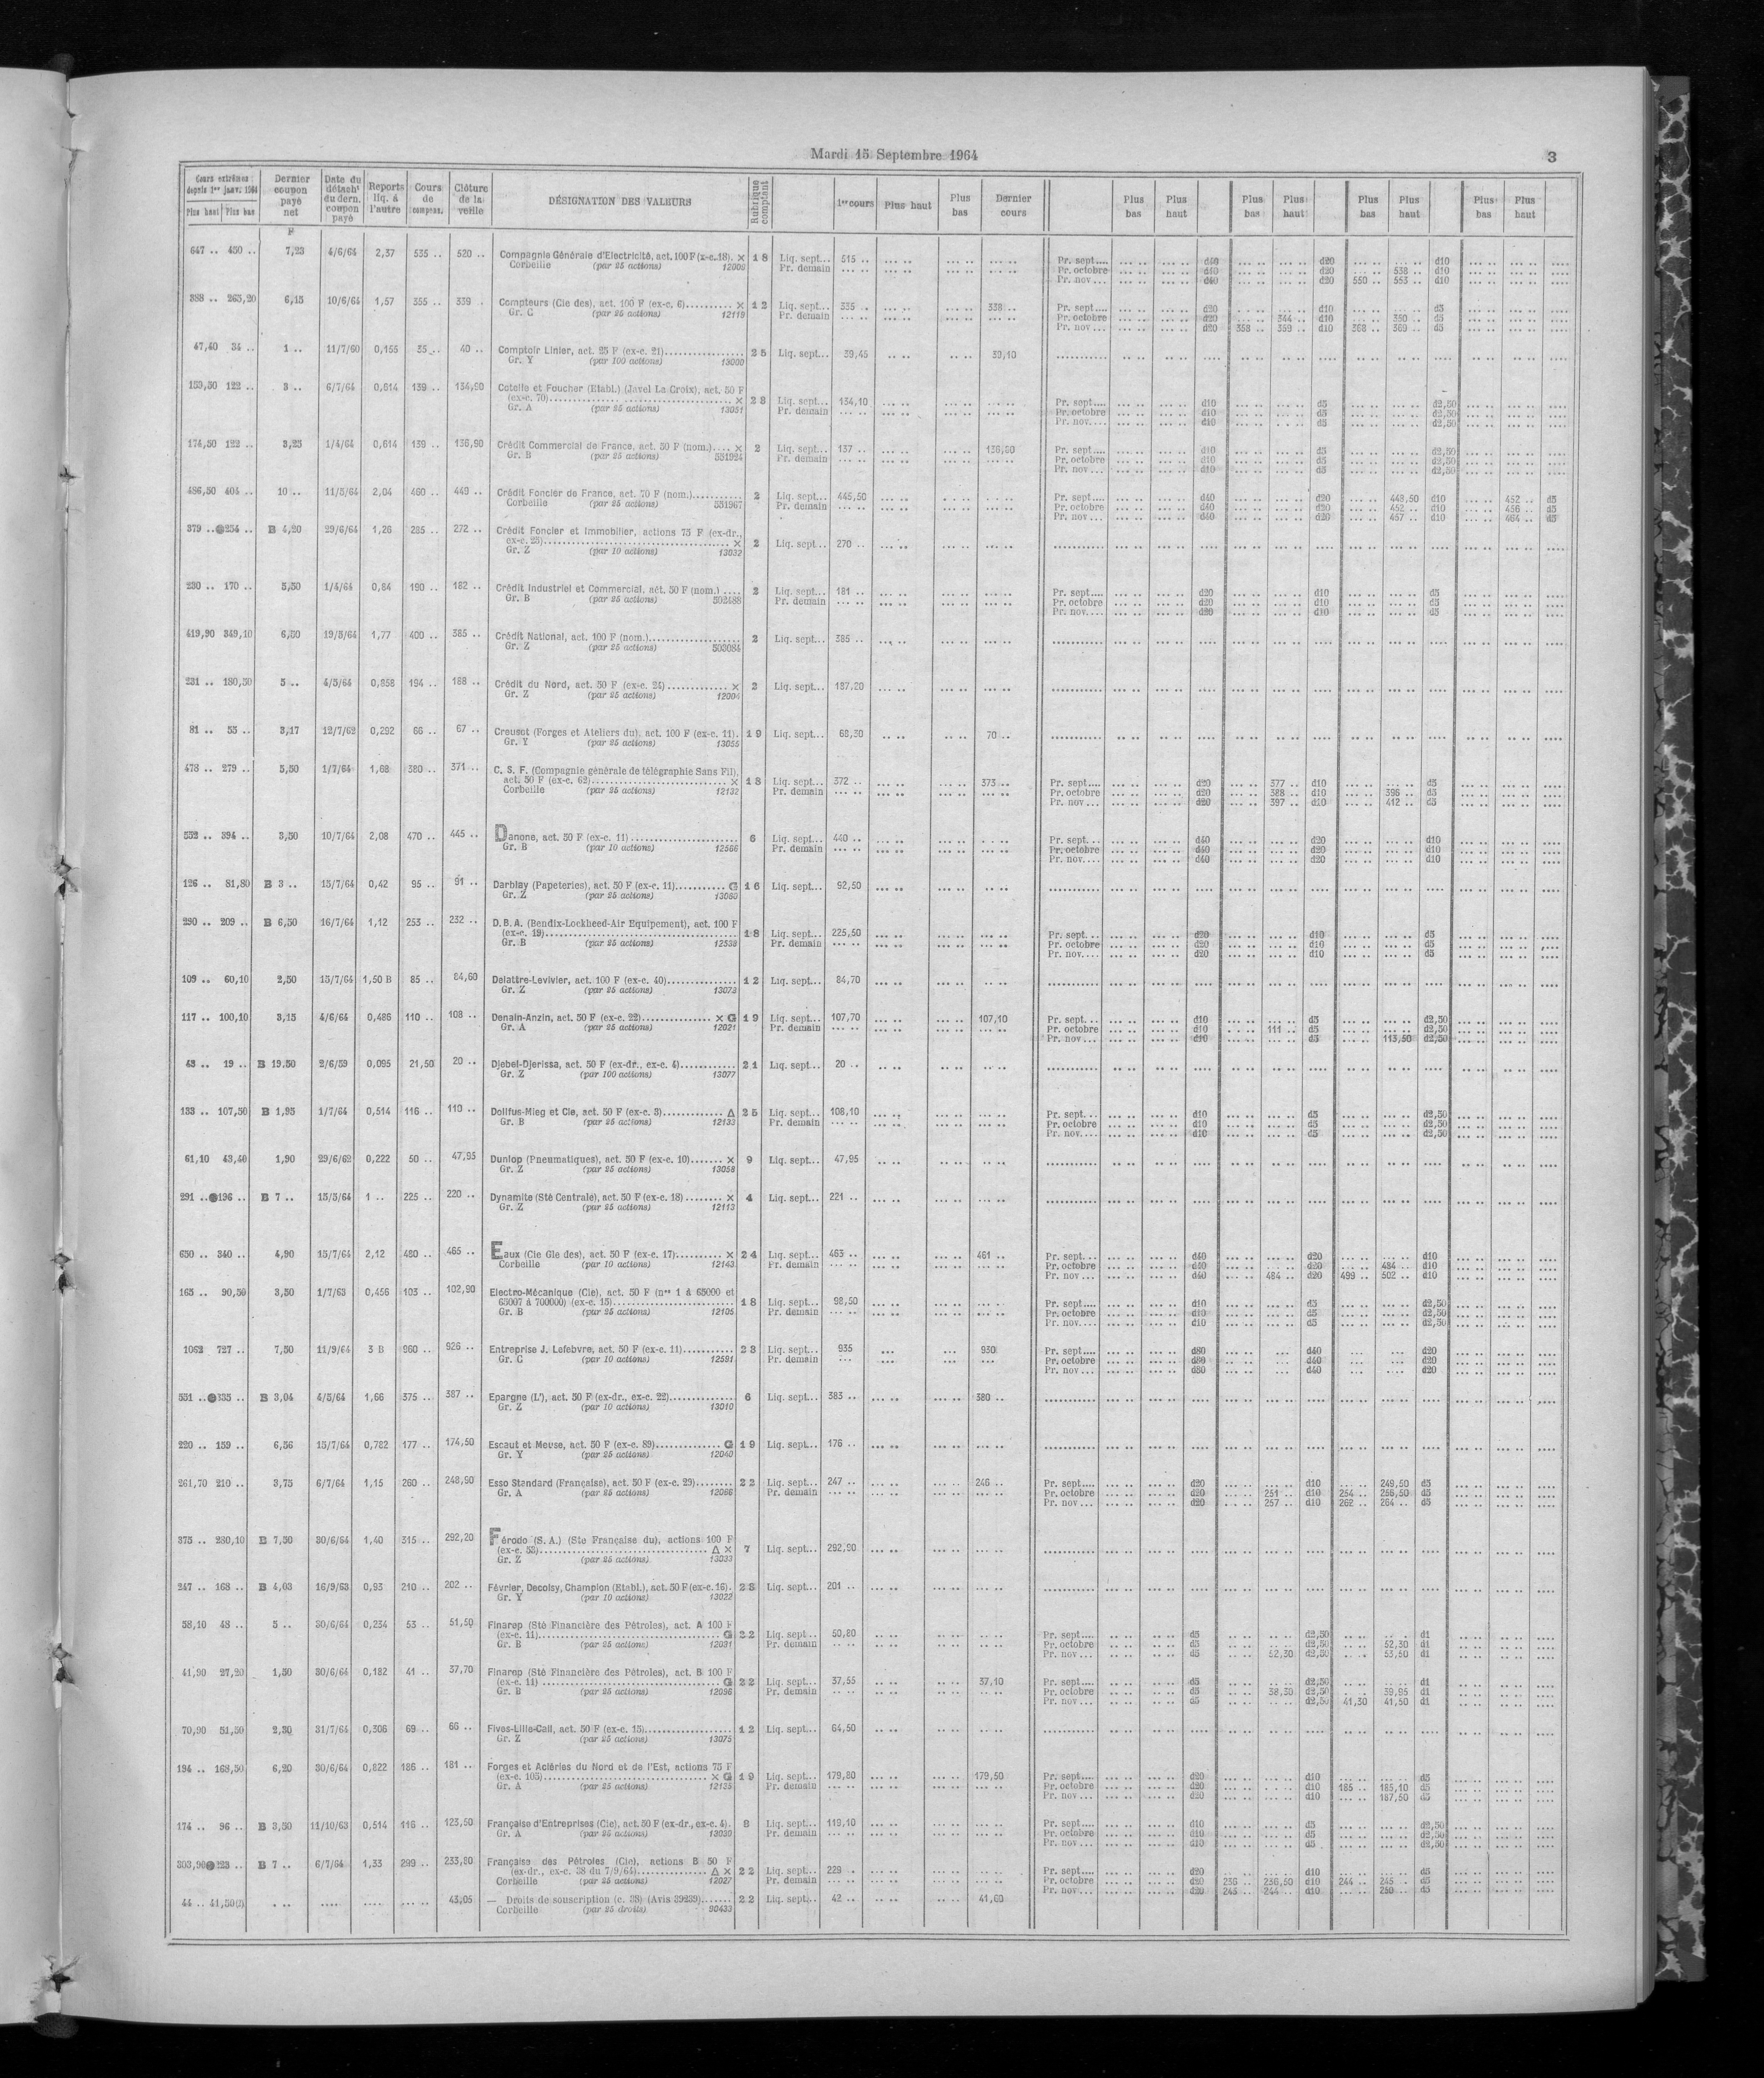 Mardi 15 Septembre 1964
3
Cours extrêmes depuis 1er janv. 1964 Plus haut Plus bas
Dernier coupon payé net
Date du détacht du dern. coupon payé
Reports liq. à l'autre
Cours de compens.
Clôture de la veille
DÉSIGNATION DES VALEURS
Rubrique comptant
1er cours
Plus haut
Plus bas
Dernier cours
Plus bas Plus haut
Plus bas Plus haut
Plus bas Plus haut
Plus bas Plus haut
F
647 .. 450 .. 7,23 4/6/64 2,37 535 .. 520 .. Compagnie Générale d'Electricité, act. 100 F (x-c. 18). × 18 Liq. sept... 515 .. Pr. sept.... d40 d20 d10
Corbeille (par 25 actions) Pr. demain Pr. octobre d40 d20 538 .. d10
Pr. nov... d40 d20 550 .. 553 .. d10
388 .. 265,20 6,15 10/6/64 1,57 355 .. 339 .. Compteurs (Cie des), act. 100 F (ex-c. 6) × 12 Liq. sept... 335 .. 338 .. Pr. sept.... d20 d10 d5
Gr. C (par 25 actions) 12119 Pr. demain Pr. octobre d20 344 .. d10 350 .. d5
Pr. nov... d20 358 .. 359 .. d10 368 .. 369 .. d5
47,40 34 .. 1 .. 11/7/60 0,155 35 .. 40 .. Comptoir Linier, act. 25 F (ex-c. 21) 25 Liq. sept... 39,45 39,10
Gr. Y (par 100 actions) 13000
159,50 122 .. 3 .. 6/7/64 0,614 139 .. 134,90 Cotelle et Foucher (Etabl.) (Javel La Croix), act. 50 F
(ex-c. 70) × 28 Liq. sept... 134,10 Pr. sept.... d10 d5 d2,50
Gr. A (par 25 actions) 13051 Pr. demain Pr. octobre d10 d5 d2,50
Pr. nov.... d10 d5 d2,50
174,50 122 .. 3,25 1/4/64 0,614 139 .. 136,90 Crédit Commercial de France, act. 50 F (nom.) × 2 Liq. sept... 137 .. 136,50 Pr. sept.... d10 d5 d2,50
Gr. B (par 25 actions) 551924 Pr. demain Pr. octobre d10 d5 d2,50
Pr. nov... d10 d5 d2,50
486,50 404 .. 10 .. 11/5/64 2,04 460 .. 449 .. Crédit Foncier de France, act. 70 F (nom.) 2 Liq. sept... 445,50 Pr. sept.... d40 d20 448,50 d10 452 .. d5
Corbeille (par 25 actions) 551967 Pr. demain Pr. octobre d40 d20 452 .. d10 456 .. d5
Pr. nov... d40 d20 457 .. d10 464 .. d5
379 .. ●254 .. B 4,20 29/6/64 1,26 285 .. 272 .. Crédit Foncier et Immobilier, actions 75 F (ex-dr.,
ex-c. 25) × 2 Liq. sept... 270 ..
Gr. Z (par 10 actions) 13032
230 .. 170 .. 5,50 1/4/64 0,84 190 .. 182 .. Crédit Industriel et Commercial, act. 50 F (nom.) 2 Liq. sept... 181 .. Pr. sept.... d20 d10 d5
Gr. B (par 25 actions) 502488 Pr. demain Pr. octobre d20 d10 d5
Pr. nov.... d20 d10 d5
419,90 349,10 6,50 19/5/64 1,77 400 .. 385 .. Crédit National, act. 100 F (nom.) 2 Liq. sept... 385 ..
Gr. Z (par 25 actions) 503084
231 .. 180,50 5 .. 4/5/64 0,858 194 .. 188 .. Crédit du Nord, act. 50 F (ex-c. 24) × 2 Liq. sept... 187,20
Gr. Z (par 25 actions) 12004
81 .. 55 .. 3,17 12/7/62 0,292 66 .. 67 .. Creusot (Forges et Ateliers du), act. 100 F (ex-c. 11). 19 Liq. sept... 68,50 70 ..
Gr. Y (par 25 actions) 13055
478 .. 279 .. 5,50 1/7/64 1,68 380 .. 371 .. C. S. F. (Compagnie générale de télégraphie Sans Fil),
act. 50 F (ex-c. 62) × 18 Liq. sept... 372 .. 373 .. Pr. sept.... d20 377 .. d10 d5
Corbeille (par 25 actions) 12132 Pr. demain Pr. octobre d20 388 .. d10 396 .. d5
Pr. nov... d20 397 .. d10 412 .. d5
552 .. 394 .. 3,50 10/7/64 2,08 470 .. 445 .. Danone, act. 50 F (ex-c. 11) 6 Liq. sept... 440 .. Pr. sept. d40 d20 d10
Gr. B (par 10 actions) 12566 Pr. demain Pr. octobre d40 d20 d10
Pr. nov.... d40 d20 d10
126 .. 81,80 B 3 .. 15/7/64 0,42 95 .. 91 .. Darblay (Papeteries), act. 50 F (ex-c. 11) G 16 Liq. sept... 92,50
Gr. Z (par 25 actions) 13060
290 .. 209 .. B 6,50 16/7/64 1,12 253 .. 232 .. D.B.A. (Bendix-Lockheed-Air Equipement), act. 100 F
(ex-c. 19) 18 Liq. sept... 225,50 Pr. sept... d20 d10 d5
Gr. B (par 25 actions) 12539 Pr. demain Pr. octobre d20 d10 d5
Pr. nov.... d20 d10 d5
109 .. 60,10 2,50 15/7/64 1,50 B 85 .. 84,60 Delattre-Levivier, act. 100 F (ex-c. 40) 12 Liq. sept... 84,70
Gr. Z (par 25 actions) 13073
117 .. 100,10 3,15 4/6/64 0,486 110 .. 108 .. Denain-Anzin, act. 50 F (ex-c. 22) × G 19 Liq. sept... 107,70 107,10 Pr. sept... d10 d5 d2,50
Gr. A (par 25 actions) 12021 Pr. demain Pr. octobre d10 111 .. d5 d2,50
Pr. nov... d10 d5 113,50 d2,50
43 .. 19 .. B 19,50 2/6/59 0,095 21,50 20 .. Djebel-Djerissa, act. 50 F (ex-dr., ex-c. 4) 21 Liq. sept... 20 ..
Gr. Z (par 100 actions) 13077
133 .. 107,50 B 1,95 1/7/64 0,514 116 .. 110 .. Dollfus-Mieg et Cie, act. 50 F (ex-c. 3) Δ 25 Liq. sept... 108,10 Pr. sept... d10 d5 d2,50
Gr. B (par 25 actions) 12133 Pr. demain Pr. octobre d10 d5 d2,50
Pr. nov.... d10 d5 d2,50
61,10 43,40 1,90 29/6/62 0,222 50 .. 47,95 Dunlop (Pneumatiques), act. 50 F (ex-c. 10) × 9 Liq. sept... 47,95
Gr. Z (par 25 actions) 13058
291 .. ●196 .. B 7 .. 15/5/64 1 .. 225 .. 220 .. Dynamite (Sté Centrale), act. 50 F (ex-c. 18) × 4 Liq. sept... 221 ..
Gr. Z (par 25 actions) 12113
650 .. 340 .. 4,90 15/7/64 2,12 480 .. 465 .. Eaux (Cie Gle des), act. 50 F (ex-c. 17) × 24 Liq. sept... 463 .. 461 .. Pr. sept... d40 d20 d10
Corbeille (par 10 actions) 12143 Pr. demain Pr. octobre d40 d20 484 .. d10
Pr. nov... d40 484 .. d20 499 .. 502 .. d10
165 .. 90,50 3,50 1/7/63 0,456 103 .. 102,90 Electro-Mécanique (Cie), act. 50 F (nos 1 à 65000 et
65007 à 700000) (ex-c. 15) 18 Liq. sept... 98,50 Pr. sept.... d10 d5 d2,50
Gr. B (par 25 actions) 12105 Pr. demain Pr. octobre d10 d5 d2,50
Pr. nov.... d10 d5 d2,50
1062 727 .. 7,50 11/9/64 3 B 960 .. 926 .. Entreprise J. Lefebvre, act. 50 F (ex-c. 11) 23 Liq. sept... 935 930 Pr. sept.... d80 d40 d20
Gr. C (par 10 actions) 12581 Pr. demain Pr. octobre d80 d40 d20
Pr. nov... d80 d40 d20
551 .. ●335 .. B 3,04 4/5/64 1,66 375 .. 387 .. Epargne (L'), act. 50 F (ex-dr., ex-c. 22) 6 Liq. sept... 383 .. 380 ..
Gr. Z (par 10 actions) 13010
220 .. 159 .. 6,56 15/7/64 0,782 177 .. 174,50 Escaut et Meuse, act. 50 F (ex-c. 89) G 19 Liq. sept... 176 ..
Gr. Y (par 25 actions) 12040
261,70 210 .. 3,75 6/7/64 1,15 260 .. 248,90 Esso Standard (Française), act. 50 F (ex-c. 29) 22 Liq. sept... 247 .. 246 .. Pr. sept.... d20 d10 249,50 d5
Gr. A (par 25 actions) 12086 Pr. demain Pr. octobre d20 251 .. d10 254 .. 256,50 d5
Pr. nov... d20 257 .. d10 262 .. 264 .. d5
375 .. 280,10 B 7,50 30/6/64 1,40 315 .. 292,20 Férodo (S. A.) (Ste Française du), actions 100 F
(ex-c. 53) Δ × 7 Liq. sept... 292,90
Gr. Z (par 25 actions) 13033
247 .. 168 .. B 4,03 16/9/63 0,93 210 .. 202 .. Février, Decoisy, Champion (Etabl.), act. 50 F (ex-c. 16). 28 Liq. sept... 201 ..
Gr. Y (par 10 actions) 13022
58,10 48 .. 5 .. 30/6/64 0,234 53 .. 51,50 Finarep (Sté Financière des Pétroles), act. A 100 F
(ex-c. 11) G 22 Liq. sept... 50,80 Pr. sept.... d5 d2,50 d1
Gr. B (par 25 actions) 12031 Pr. demain Pr. octobre d5 d2,50 52,30 d1
Pr. nov... d5 52,30 d2,50 53,50 d1
41,90 27,20 1,50 30/6/64 0,182 41 .. 37,70 Finarep (Sté Financière des Pétroles), act. B 100 F
(ex-c. 11) G 22 Liq. sept... 37,55 37,10 Pr. sept.... d5 d2,50 d1
Gr. B (par 25 actions) 12096 Pr. demain Pr. octobre d5 38,30 d2,50 39,95 d1
Pr. nov... d5 d2,50 41,30 41,50 d1
70,90 51,50 2,30 31/7/64 0,306 69 .. 66 .. Fives-Lille-Cail, act. 50 F (ex-c. 15) 12 Liq. sept... 64,50
Gr. Z (par 25 actions) 13075
194 .. 168,50 6,20 30/6/64 0,822 186 .. 181 .. Forges et Aciéries du Nord et de l'Est, actions 75 F
(ex-c. 105) × G 19 Liq. sept... 179,80 179,50 Pr. sept.... d20 d10 d5
Gr. A (par 25 actions) 12135 Pr. demain Pr. octobre d20 d10 185 .. 185,10 d5
Pr. nov... d20 d10 187,50 d5
174 .. 96 .. B 3,50 11/10/63 0,514 116 .. 123,50 Française d'Entreprises (Cie), act. 50 F (ex-dr., ex-c. 4). 8 Liq. sept... 119,10 Pr. sept.... d10 d5 d2,50
Gr. A (par 25 actions) 13039 Pr. demain Pr. octobre d10 d5 d2,50
Pr. nov... d10 d5 d2,50
303,90●223 .. B 7 .. 6/7/64 1,33 299 .. 233,80 Française des Pétroles (Cie), actions B 50 F
(ex-dr., ex-c. 38 du 7/9/64) Δ × 22 Liq. sept... 229 .. Pr. sept.... d20 d10 d5
Corbeille (par 25 actions) 12027 Pr. demain Pr. octobre d20 236 .. 236,50 d10 244 .. 245 .. d5
Pr. nov... d20 245 .. 244 .. d10 250 .. d5
44 .. 41,50 43,05 — Droits de souscription (c. 38) (Avis 39239) 22 Liq. sept... 42 .. 41,60
Corbeille (par 25 droits) 90433